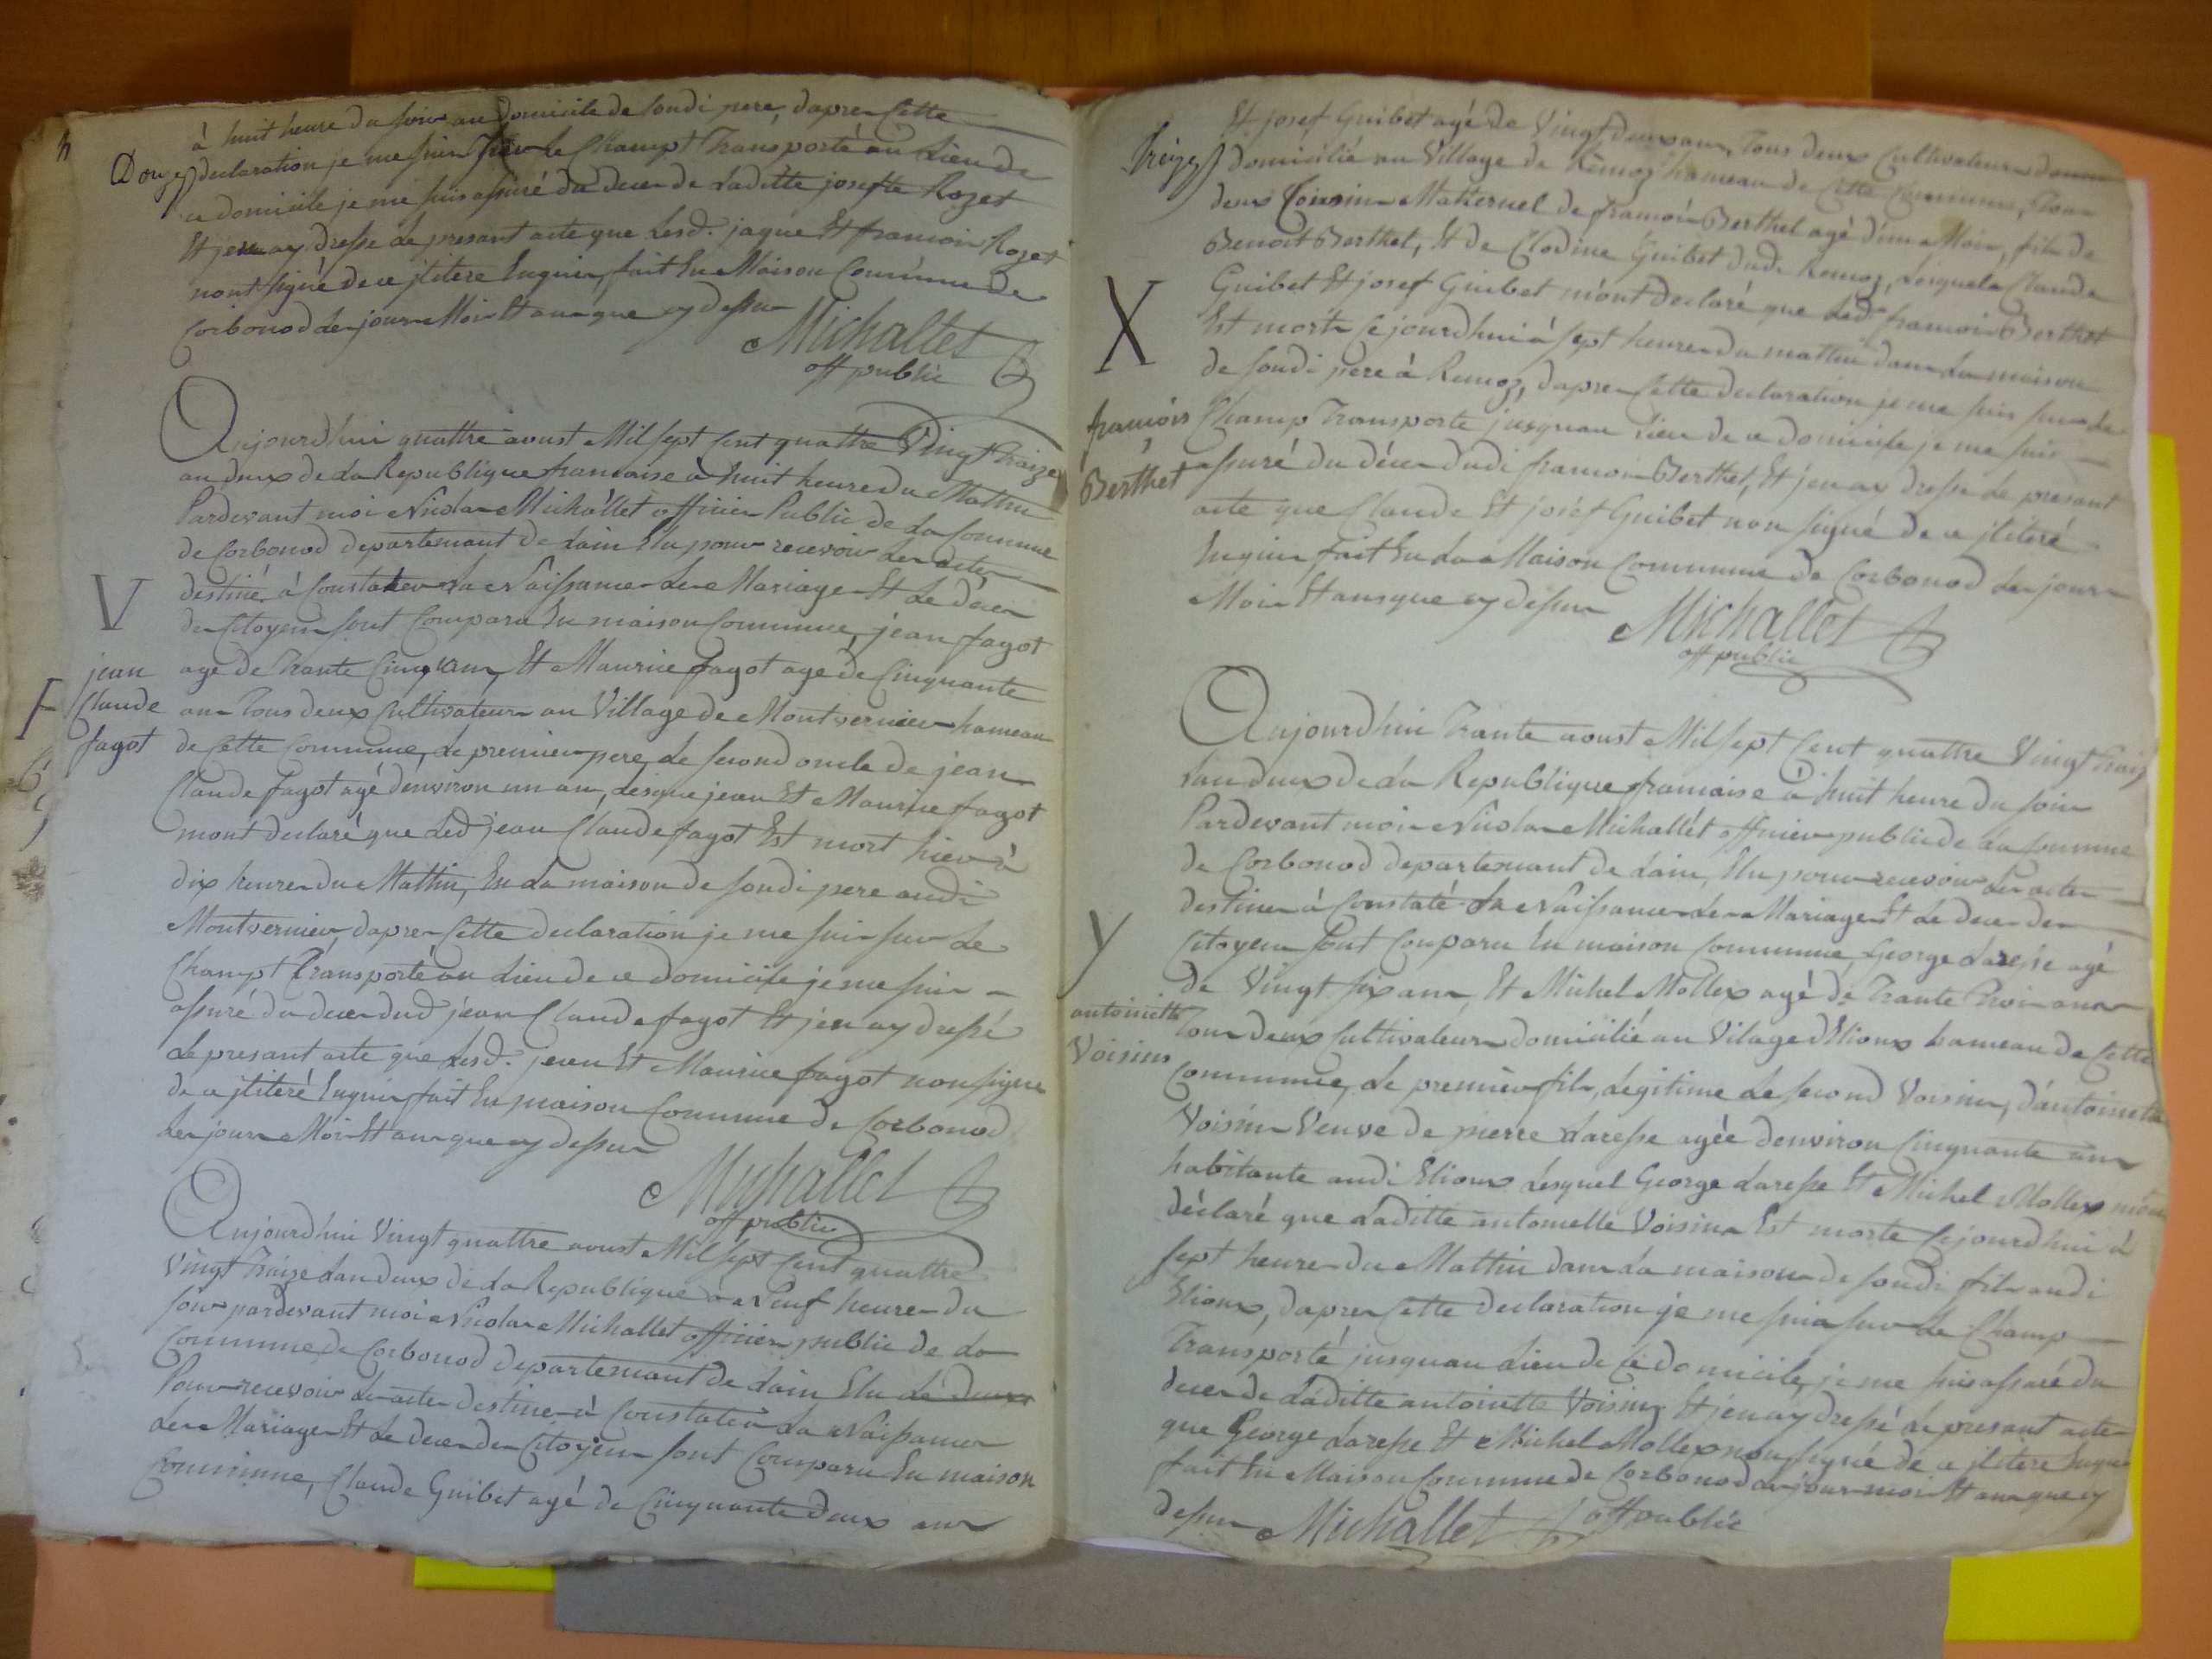 Douze
à huit heure du soir au domicile de sondi pere, dapres Cette
declaration je me suis sur le Champt Transporté au Lieu de
ce domicile je me suis assuré du deces de Laditte josefte Rozet
Et jen ay dressé Le presant acte que Lesd. jaque Et francois Rozet
nont signé de ce jlitere Enquis, fait En Maison Commune de
Corbonod Les jours Mois Et ans que cy dessus
Michallet
off public
Aujourdhui quattre aoust Mil sept Cent quattre Vingt Traize
an deux de La Republique francaise à huit heure du Mattin
Pardevant moi Nicolas Michallet officier Public de La Commune
de Corbonod departemant de Lain Elu pour recevoir Les actes
V
destiné à Constater La Naissance Les Mariage Et Le déces
des Citoyens sont Comparu En maison Commune, jean fagot
jean
Claude
fagot
agé de Trante Cinq ans, Et Maurice fagot age de Cinquante
ans Tous deux Cultivateurs au Village de Montvernier hameau
de Cette Commune, Le premier pere, Le second oncle de jean
Claude fagot agé denviron un an, Lesque jean Et Maurice fagot
mont declaré que Led jean Claude fagot Est mort hier à
dix heures du Mattin, En La maison de sondi pere audi
Montvernier, dapres Cette declaration je me suis sur Le
Champt Transporté au Lieu de ce domicile je me suis
assuré du deces dud jean Claude fagot Et jen ay dressé
Le presant acte que Lesd. jean Et Maurice fagot non signe
de ce jliteré Enquis, fait En maison Commune de Corbonod
Les jours Mois Et ans que cy dessus
Michallet
off public
Aujourdhui Vingt quattre aoust Mil sept Cent quattre
Vingt Traize Lan deux de La Republique à Neuf heures du
soir pardevant moi Nicolas Michallet officier public de La
Commune de Corbonod departemant de Lain Elu
Pour recevoir Les actes destines à Constater La Naissances
Les Mariages Et Le deces des Citoyens sont Comparu En maison
Commune, Claude Guibet agé de Cinquante deux ans
Treize
Et josef Guibet agé de Vingt deux ans, Tous deux Cultivateurs
domicilié au Village de Remoz hameau de Cette Commune, Tous
deux Cousins Maternel de francois Berthet agé dun Mois, fils de
Benoit Berthet, Et de Clodine Guibet dudi Remoz, Lesquels Claude
X
Guibet Et josef Guibet mont declaré que Led francois Berthet
Est morts Cejourdhui à sept heures du mattin dans La maison
de sondi pere à Remoz, dapres Cette declaration je me suis sur Le
francois
Berthet
Champ Transporte jusquau Lieu de ce domicile je me suis
assuré du déces dudi francois Berthet, Et jen ay dressé Le presant
acte que Claude Et josef Guibet non signé de ce jliteré
Enquis, fait En La Maison Commune de Corbonod Les jours
Mois Et ans que cy dessus
Michallet
off public
Aujourdhui Trante aoust Mil sept Cent quattre Vingt Traize
Lan deux de La Republique francaise à huit heure du soir
Pardevant moi Nicolas Michallét officier public de La Commune
de Corbonod departemant de Lain, Elu pour recevoir Les actes
destines à Constaté La Naissances Les Mariages Et Le deces des
Y
Citoyens sont Comparu En maison Commune, George Laresse agé
de Vingt six ans, Et Michel Mollex agé de Trante Trois ans
antoinette
Voisins
Tous deux Cultivateurs domicilié au Vilage dElioux hameau de Cette
Commune, Le premier fils, Legitime Le second Voisins, dantoinette
Voisins Veuve de pierre Laresse agée denviron Cinquante ans
habitante audi Elioux Lesquel George Laresse Et Michel Mollex mont
déclaré que Laditte antoinette Voisins Est morte Cejourdhui à
sept heures du Mattin dans La maison de sondi fils audi
Elioux, dapres Cette declaration je me suis sur Le Champ
Transporté jusquau Lieu de ce domicile, je me suis assuré du
deces de Laditte antoinette Voisins Et jen ay dressé Le presant acte
que George Laresse Et Michel Mollex non signé de ce jlitere Enquis
fait En Maison Commune de Corbonod Les jours mois Et ans que cy
dessus Michallet off public